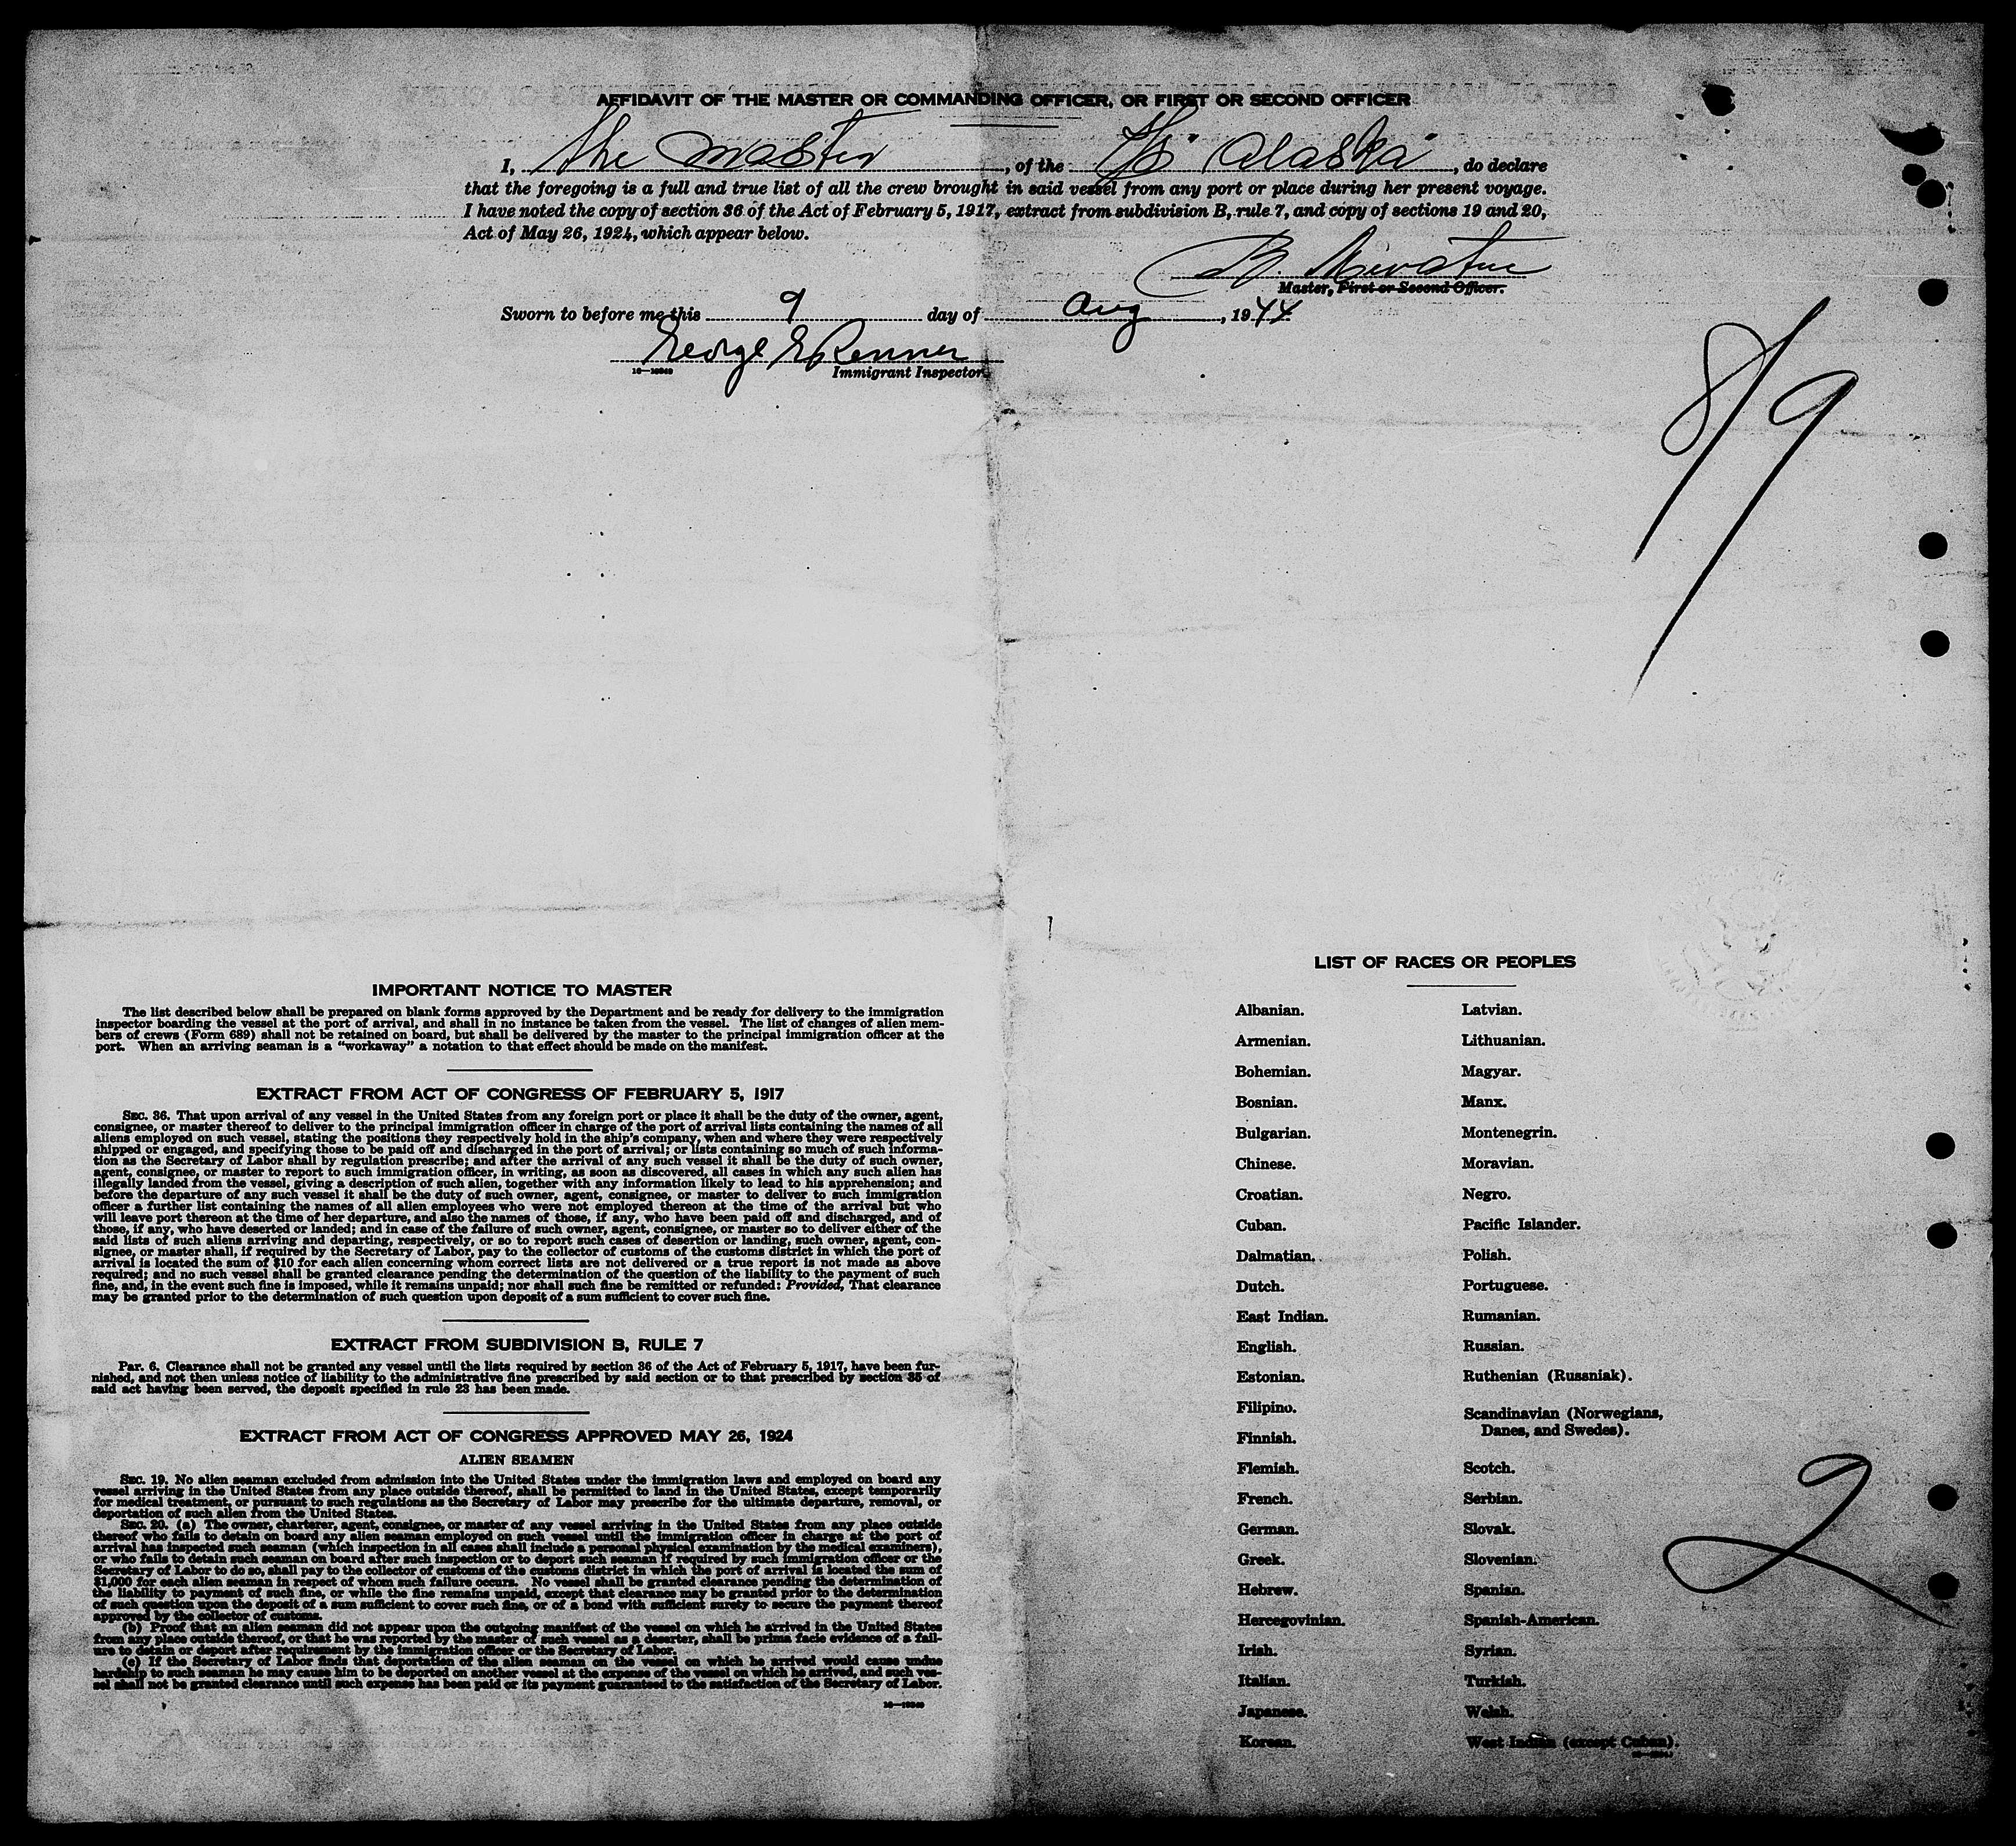 AFFIDAVIT OF THE MASTER OR COMMANDING OFFICER, OR FIRST OR SECOND OFFICER
I, the master, of the Alaska, do declare
that the foregoing is a full and true list of all the crew brought in said vessel from any port or place during her present voyage.
I have noted the copy of section 36 of the Act of February 5, 1917, extract from subdivision B, rule 7, and copy of sections 19 and 20,
Act of May 26, 1924, which appear below.
B.
Master, First or Second Officer.
Sworn to before me this 9 day of Aug, 1944
George E Renner
16—10349 Immigrant Inspector.
8/9
IMPORTANT NOTICE TO MASTER
The list described below shall be prepared on blank forms approved by the Department and be ready for delivery to the immigration
inspector boarding the vessel at the port of arrival, and shall in no instance be taken from the vessel. The list of changes of alien mem-
bers of crews (Form 689) shall not be retained on board, but shall be delivered by the master to the principal immigration officer at the
port. When an arriving seaman is a "workaway" a notation to that effect should be made on the manifest.
EXTRACT FROM ACT OF CONGRESS OF FEBRUARY 5, 1917
SEC. 36. That upon arrival of any vessel in the United States from any foreign port or place it shall be the duty of the owner, agent,
consignee, or master thereof to deliver to the principal immigration officer in charge of the port of arrival lists containing the names of all
aliens employed on such vessel, stating the positions they respectively hold in the ship's company, when and where they were respectively
shipped or engaged, and specifying those to be paid off and discharged in the port of arrival; or lists containing so much of such informa-
tion as the Secretary of Labor shall by regulation prescribe; and after the arrival of any such vessel it shall be the duty of such owner,
agent, consignee, or master to report to such immigration officer, in writing, as soon as discovered, all cases in which any such alien has
illegally landed from the vessel, giving a description of such alien, together with any information likely to lead to his apprehension; and
before the departure of any such vessel it shall be the duty of such owner, agent, consignee, or master to deliver to such immigration
officer a further list containing the names of all alien employees who were not employed thereon at the time of the arrival but who
will leave port thereon at the time of her departure, and also the names of those, if any, who have been paid off and discharged, and of
those, if any, who have deserted or landed; and in case of the failure of such owner, agent, consignee, or master so to deliver either of the
said lists of such aliens arriving and departing, respectively, or so to report such cases of desertion or landing, such owner, agent, con-
signee, or master shall, if required by the Secretary of Labor, pay to the collector of customs of the customs district in which the port of
arrival is located the sum of $10 for each alien concerning whom correct lists are not delivered or a true report is not made as above
required; and no such vessel shall be granted clearance pending the determination of the question of the liability to the payment of such
fine, and, in the event such fine is imposed, while it remains unpaid; nor shall such fine be remitted or refunded: Provided, That clearance
may be granted prior to the determination of such question upon deposit of a sum sufficient to cover such fine.
EXTRACT FROM SUBDIVISION B, RULE 7
Par. 6. Clearance shall not be granted any vessel until the lists required by section 36 of the Act of February 5, 1917, have been fur-
nished, and not then unless notice of liability to the administrative fine prescribed by said section or to that prescribed by section 35 of
said act having been served, the deposit specified in rule 23 has been made.
EXTRACT FROM ACT OF CONGRESS APPROVED MAY 26, 1924
ALIEN SEAMEN
SEC. 19. No alien seaman excluded from admission into the United States under the immigration laws and employed on board any
vessel arriving in the United States from any place outside thereof, shall be permitted to land in the United States, except temporarily
for medical treatment, or pursuant to such regulations as the Secretary of Labor may prescribe for the ultimate departure, removal, or
deportation of such alien from the United States.
SEC. 20. (a) The owner, charterer, agent, consignee, or master of any vessel arriving in the United States from any place outside
thereof who fails to detain on board any alien seaman employed on such vessel until the immigration officer in charge at the port of
arrival has inspected such seaman (which inspection in all cases shall include a personal physical examination by the medical examiners),
or who fails to detain such seaman on board after such inspection or to deport such seaman if required by such immigration officer or the
Secretary of Labor to do so, shall pay to the collector of customs of the customs district in which the port of arrival is located the sum of
$1,000 for each alien seaman in respect of whom such failure occurs. No vessel shall be granted clearance pending the determination of
the liability to payment of such fine, or while the fine remains unpaid, except that clearance may be granted prior to the determination
of such question upon the deposit of a sum sufficient to cover such fine, or of a bond with sufficient surety to secure the payment thereof
approved by the collector of customs.
(b) Proof that an alien seaman did not appear upon the outgoing manifest of the vessel on which he arrived in the United States
from any place outside thereof, or that he was reported by the master of such vessel as a deserter, shall be prima facie evidence of a fail-
ure to detain or deport after requirement by the immigration officer or the Secretary of Labor.
(c) If the Secretary of Labor finds that deportation of the alien seaman on the vessel on which he arrived would cause undue
hardship to such seaman he may cause him to be deported on another vessel at the expense of the vessel on which he arrived, and such ves-
sel shall not be granted clearance until such expense has been paid or its payment guaranteed to the satisfaction of the Secretary of Labor.
16—10349
LIST OF RACES OR PEOPLES
Albanian.
Armenian.
Bohemian.
Bosnian.
Bulgarian.
Chinese.
Croatian.
Cuban.
Dalmatian.
Dutch.
East Indian.
English.
Estonian.
Filipino.
Finnish.
Flemish.
French.
German.
Greek.
Hebrew.
Hercegovinian.
Irish.
Italian.
Japanese.
Korean.
Latvian.
Lithuanian.
Magyar.
Manx.
Montenegrin.
Moravian.
Negro.
Pacific Islander.
Polish.
Portuguese.
Rumanian.
Russian.
Ruthenian (Russniak).
Scandinavian (Norwegians,
Danes, and Swedes).
Scotch.
Serbian.
Slovak.
Slovenian.
Spanish.
Spanish-American.
Syrian.
Turkish.
Welsh.
West Indian (except Cuban).
2